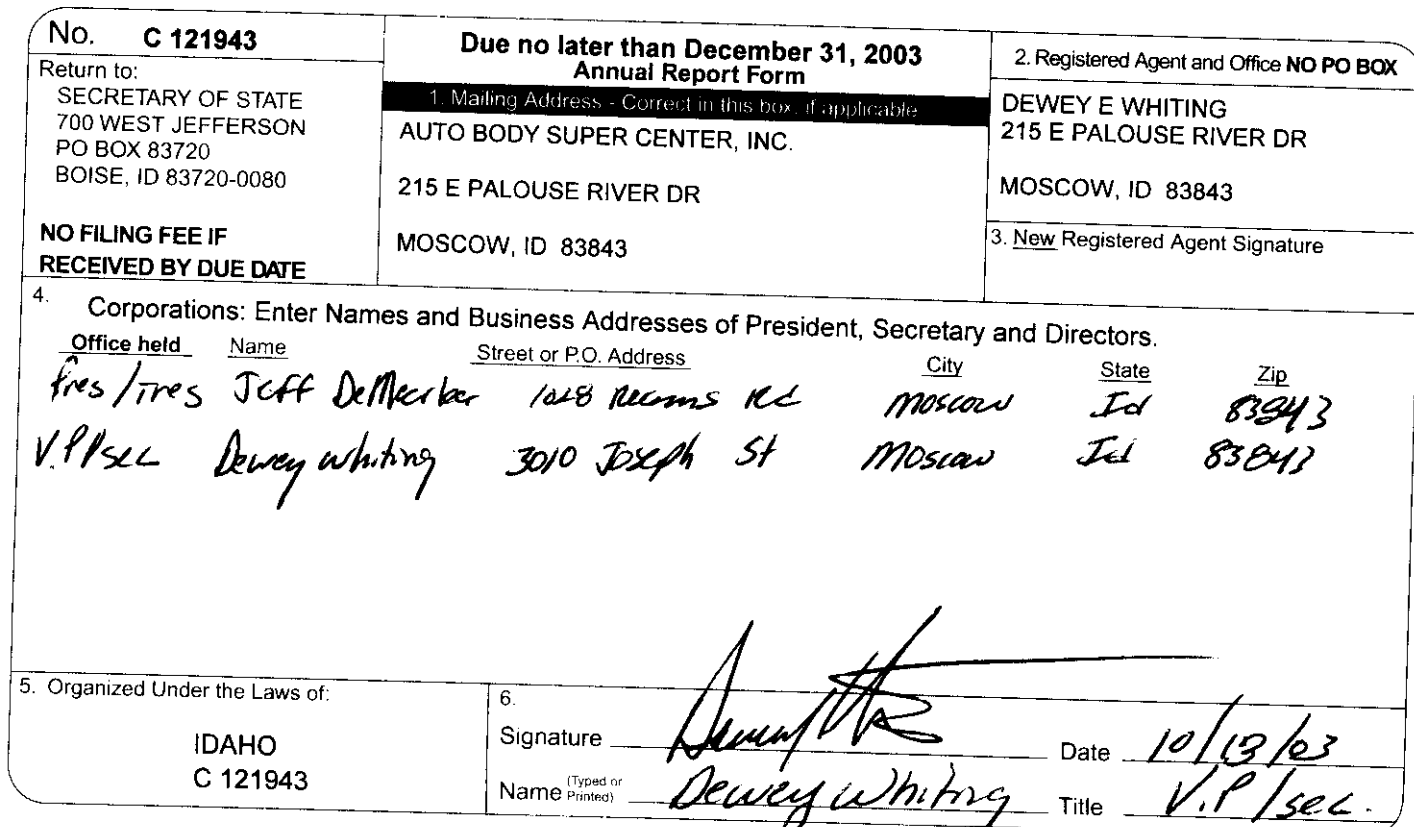 No. C 121943
Return to:
SECRETARY OF STATE
700 WEST JEFFERSON
PO BOX 83720
BOISE, ID 83720-0080
NO FILING FEE IF
RECEIVED BY DUE DATE
Due no later than December 31, 2003
Annual Report Form
1. Mailing Address - Correct in this box, if applicable
AUTO BODY SUPER CENTER, INC.
215 E PALOUSE RIVER DR
MOSCOW, ID 83843
2. Registered Agent and Office NO PO BOX
DEWEY E WHITING
215 E PALOUSE RIVER DR
MOSCOW, ID 83843
3. New Registered Agent Signature
4. Corporations: Enter Names and Business Addresses of President, Secretary and Directors.
Office held Name Street or P.O. Address City State Zip
Pres/Tres Jeff 1028 Rd Moscow Id 83843
V.P/sec Dewey Whiting 3010 Joseph St Moscow Id 83843
5. Organized Under the Laws of:
IDAHO
C 121943
6.
Signature Date 10/13/03
Name (Typed or Printed) Dewey Whiting Title V.P/sec.